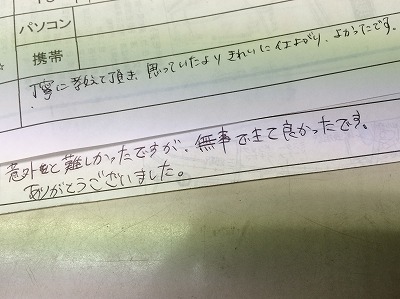 パソコン
携帯
丁寧に教えて頂き、思っていたよりきれいに仕上がり、よかったです。
意外と難しかったですが、無事できて良かったです。
ありがとうございました。